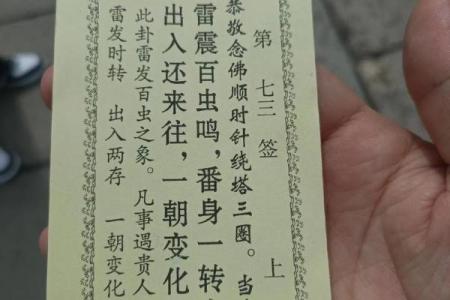 第七三签上
恭敬念佛顺时针绕塔三圈。当
雷震百虫鸣，番身一转
出入还来往，一朝变化
此卦雷发百虫之象。凡事遇贵人
雷发时转 出入两存 一朝变化